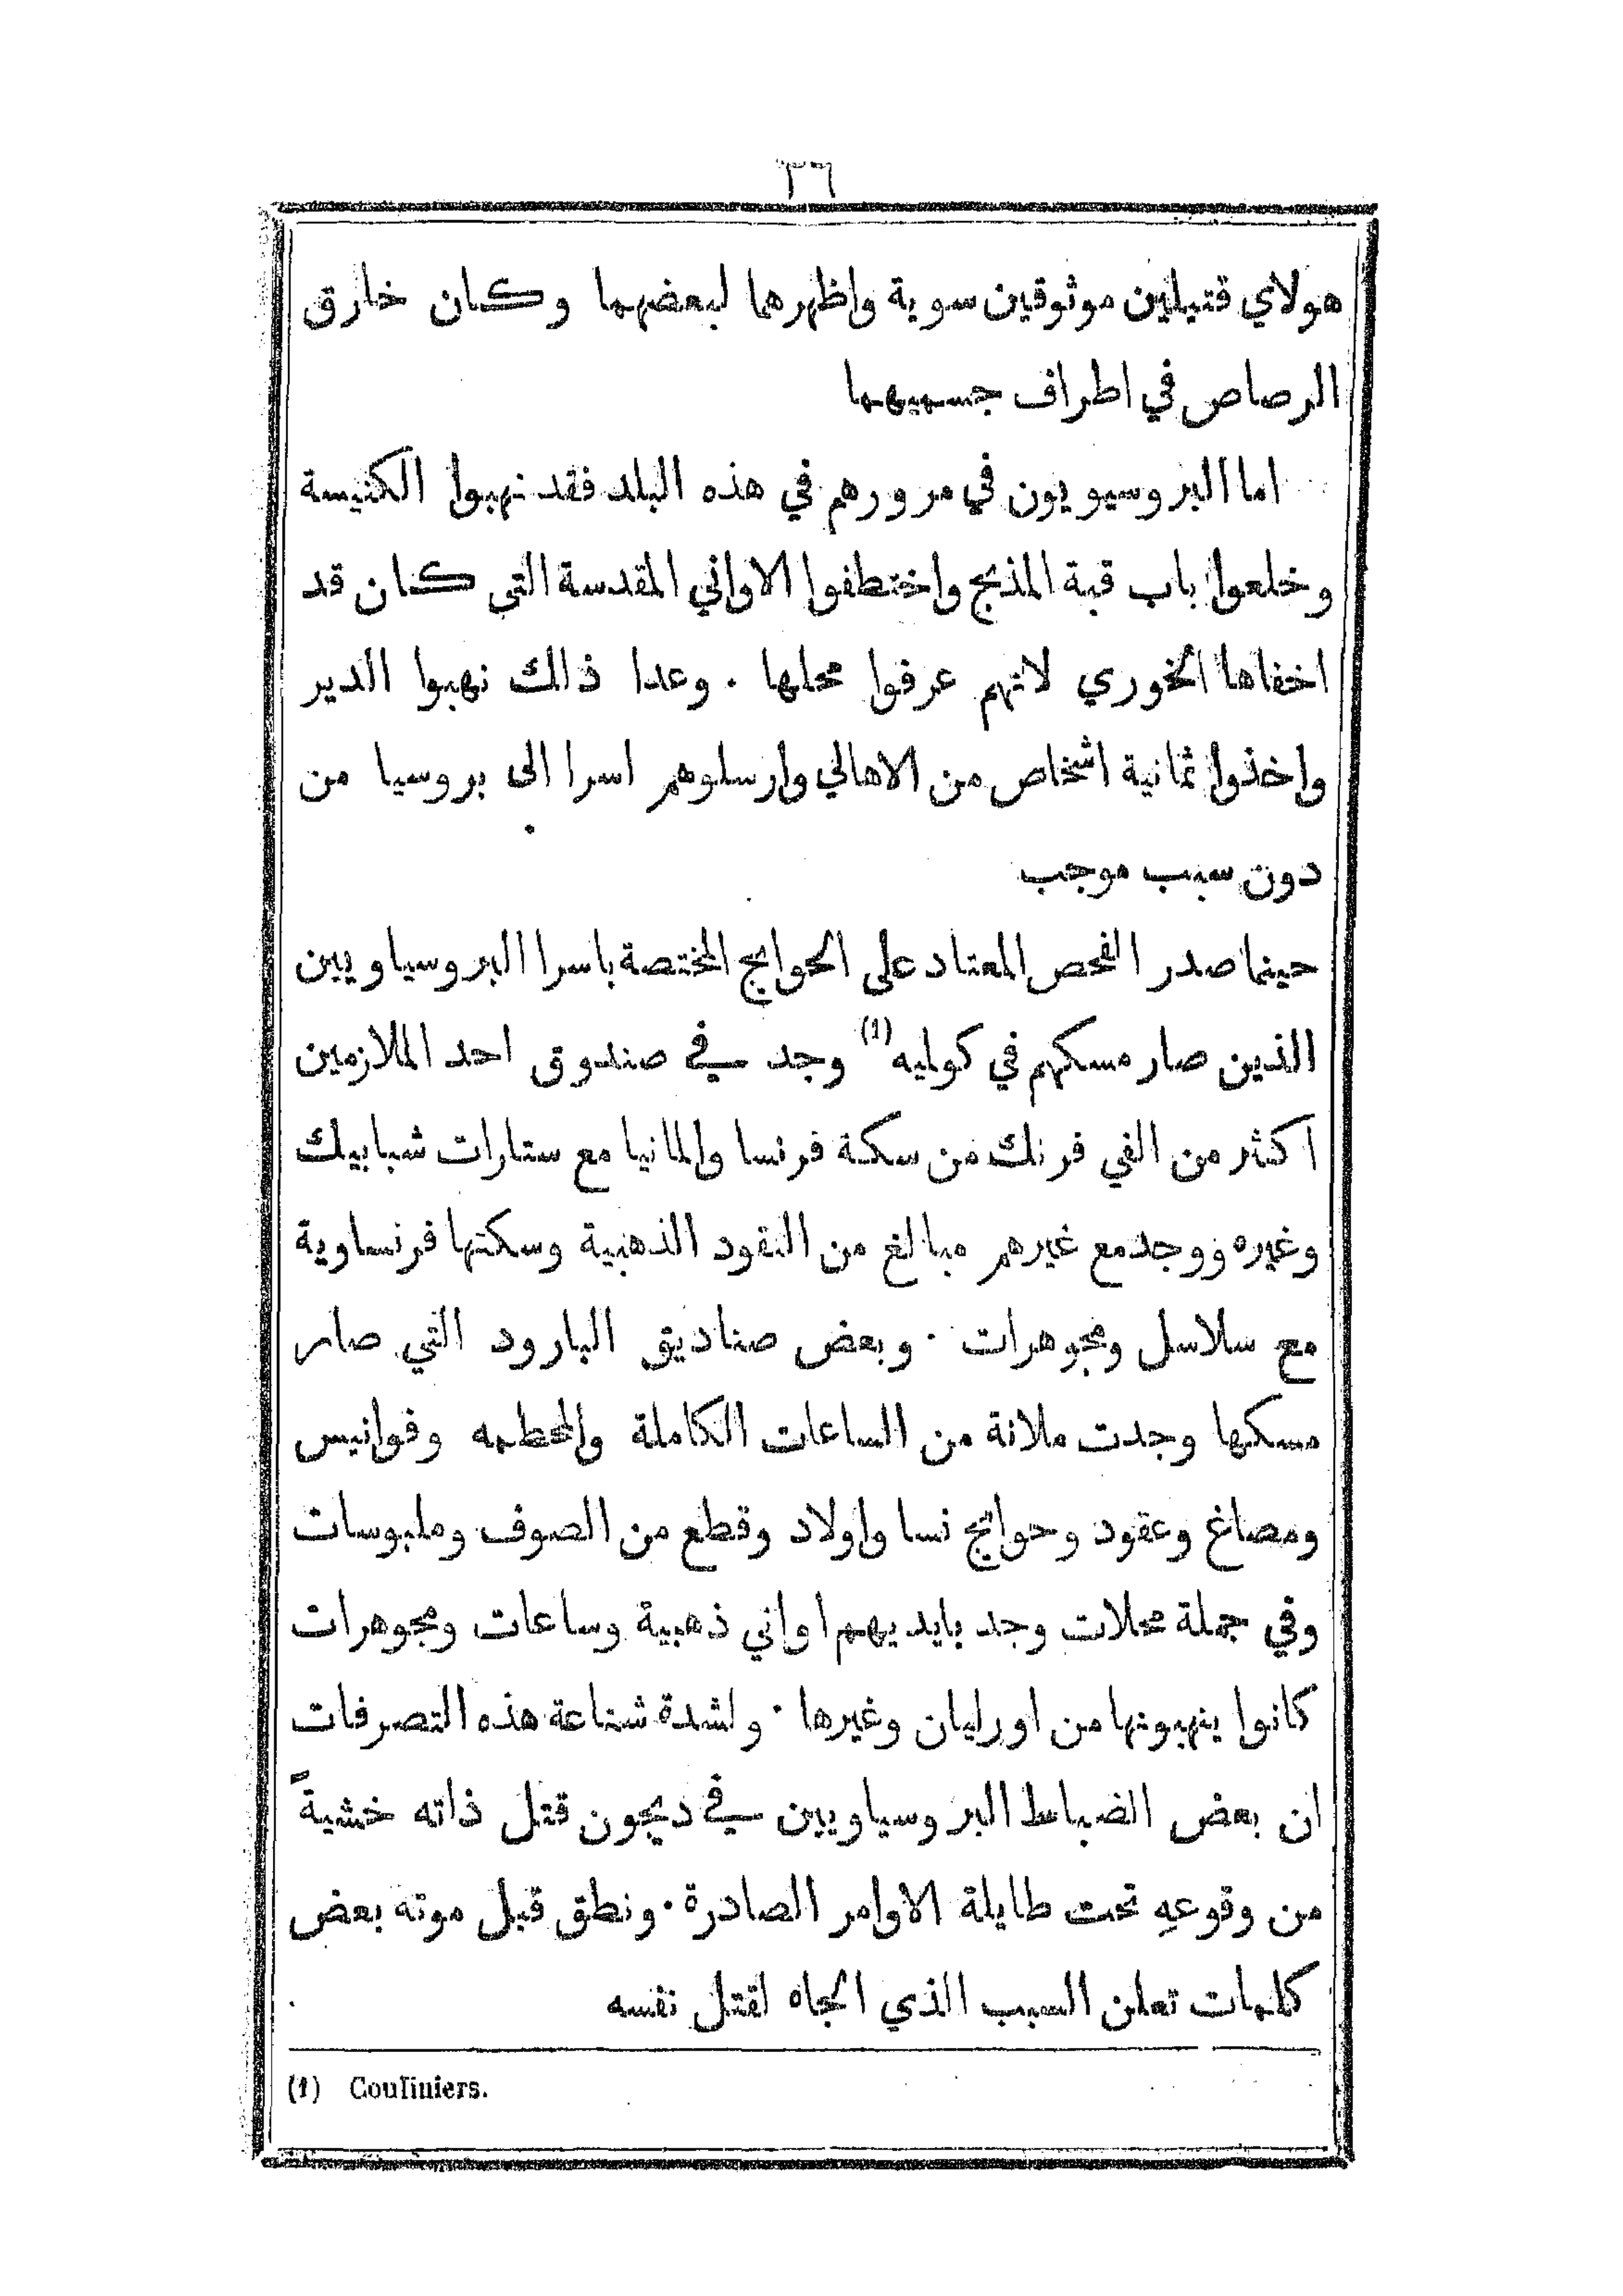 ٣٦
هولاي قتيلين موثوقين سوية واظهرهما لبعضهما وكان خارق
الرصاص في اطراف جسميهما
اما البروسيويون في مرورهم في هذه البلد فقد نهبوا الكنيسة
وخلعوا باب قبة المذبح واختطفوا الاواني المقدسة التي كان قد
اخفاها الخوري لانهم عرفوا محلها . وعدا ذالك نهبوا الدير
واخذوا ثمانية اشخاص من الاهالي وارسلوهم اسرا الى بروسيا من
دون سبب موجب
حينما صدر الفحص المعتاد على الحوايج المختصة باسرا البروسياويين
الذين صار مسكهم في كوليه (1) وجد في صندوق احد الملازمين
اكثر من الفي فرنك من سكة فرنسا والمانيا مع ستارات شبابيك
وغيره ووجد مع غيرهم مبالغ من النقود الذهبية وسكتها فرنساوية
مع سلاسل ومجوهرات . وبعض صناديق البارود التي صار
مسكها وجدت ملانة من الساعات الكاملة والمحطمه وفوانيس
ومصاغ وعقود وحوايج نسا واولاد وقطع من الصوف وملبوسات
وفي جملة محلات وجد بايديهم اواني ذهبية وساعات ومجوهرات
كانوا ينهبونها من اورليان وغيرها . ولشدة شناعة هذه التصرفات
ان بعض الضباط البروسياويين في ديجون قتل ذاته خشيةً
من وقوعهِ تحت طايلة الاوامر الصادرة . ونطق قبل موته بعض
كلمات تعلن السبب الذي الجاه لقتل نفسه
(1) Couliniers.